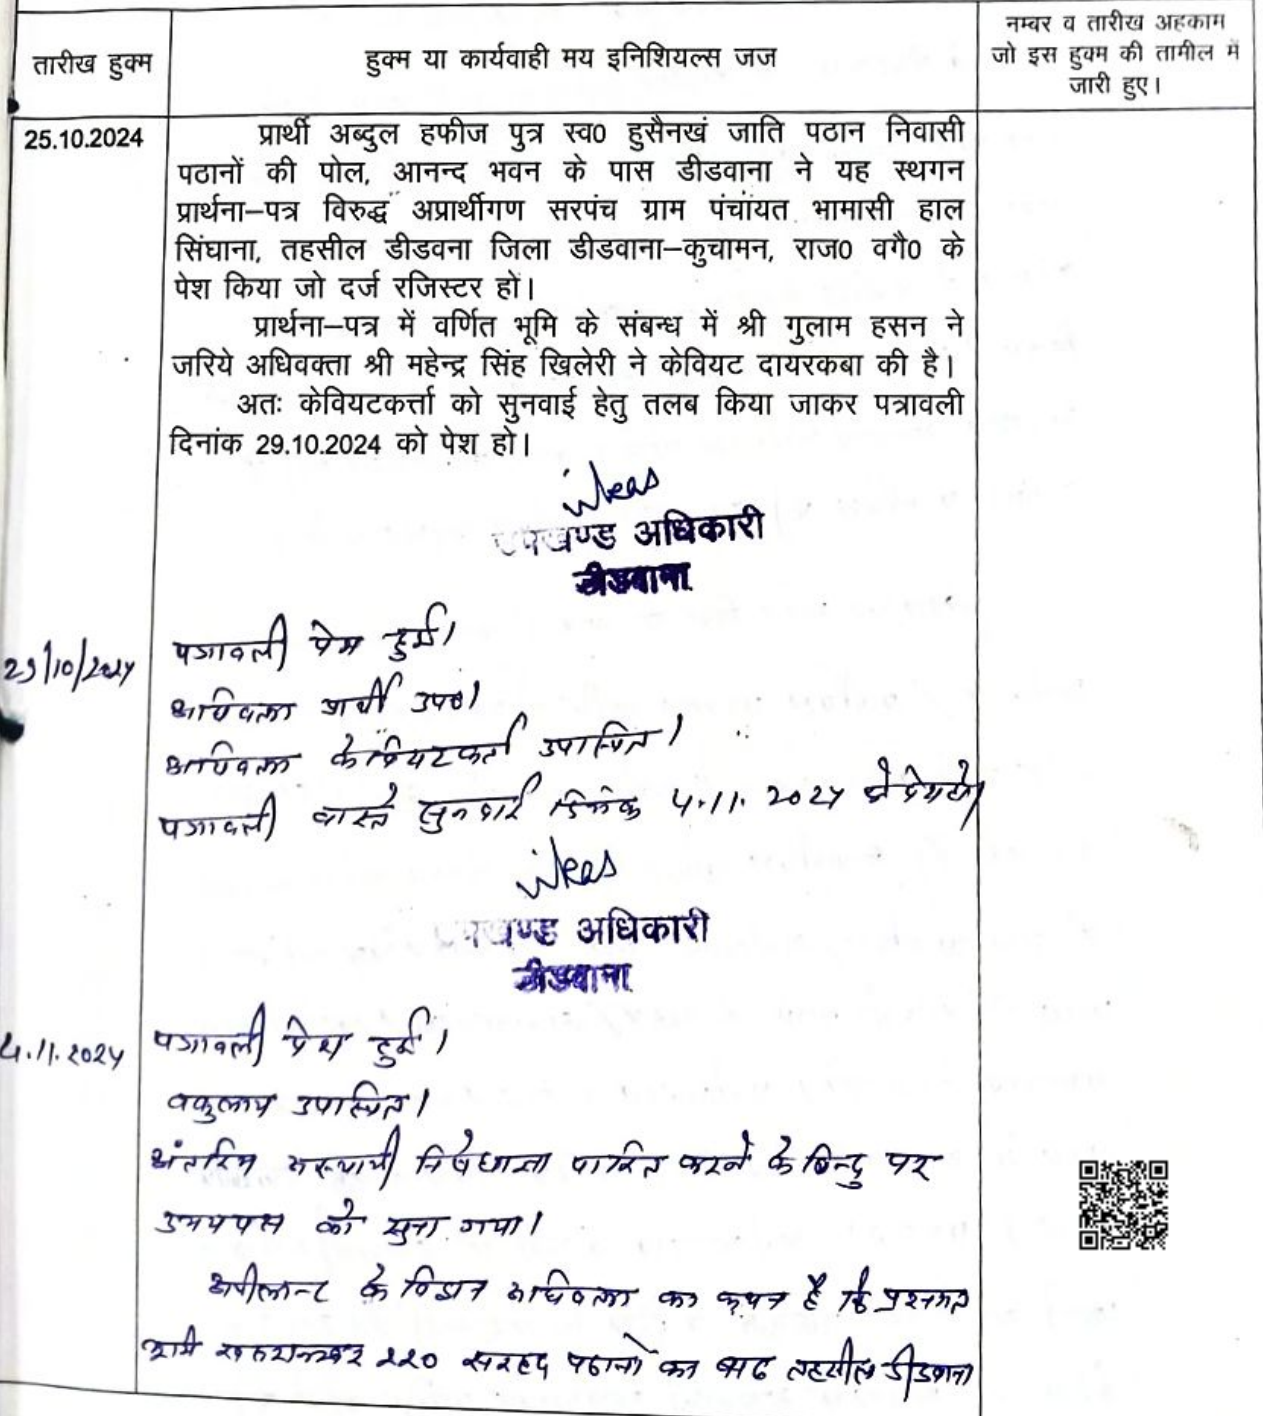 तारीख हुक्म
हुक्म या कार्यवाही मय इनिशियल्स जज
नम्बर व तारीख अहकाम
जो इस हुक्म की तामील में
जारी हुए।
25.10.2024
प्रार्थी अब्दुल हफीज पुत्र स्व0 हुसैनखं जाति पठान निवासी
पठानों की पोल, आनन्द भवन के पास डीडवाना ने यह स्थगन
प्रार्थना–पत्र विरुद्ध अप्रार्थीगण सरपंच ग्राम पंचांयत भामासी हाल
सिंघाना, तहसील डीडवना जिला डीडवाना–कुचामन, राज0 वगै0 के
पेश किया जो दर्ज रजिस्टर हों।
प्रार्थना–पत्र में वर्णित भूमि के संबन्ध में श्री गुलाम हसन ने
जरिये अधिवक्ता श्री महेन्द्र सिंह खिलेरी ने केवियट दायरकबा की है।
अतः केवियटकर्त्ता को सुनवाई हेतु तलब किया जाकर पत्रावली
दिनांक 29.10.2024 को पेश हो।
उपखण्ड अधिकारी
डीडवाना
29/10/2024
पत्रावली पेश हुई।
अधिवक्ता प्रार्थी उप0।
अधिवक्ता केवियटकर्ता उपस्थित।
पत्रावली वास्ते सुनवाई दिनांक 4.11.2024 को पेश हो।
उपखण्ड अधिकारी
डीडवाना
4.11.2024
पत्रावली पेश हुई।
वकुलाय उपस्थित।
अंतरिम अस्थायी निषेधाज्ञा पारित करने के बिन्दु पर
उभयपक्ष को सुना गया।
अपीलान्ट के विद्वान अधिवक्ता का कथन है कि प्रश्नगत
भूमि खसरा नम्बर 220 सरहद पठानों का बास तहसील डीडवाना